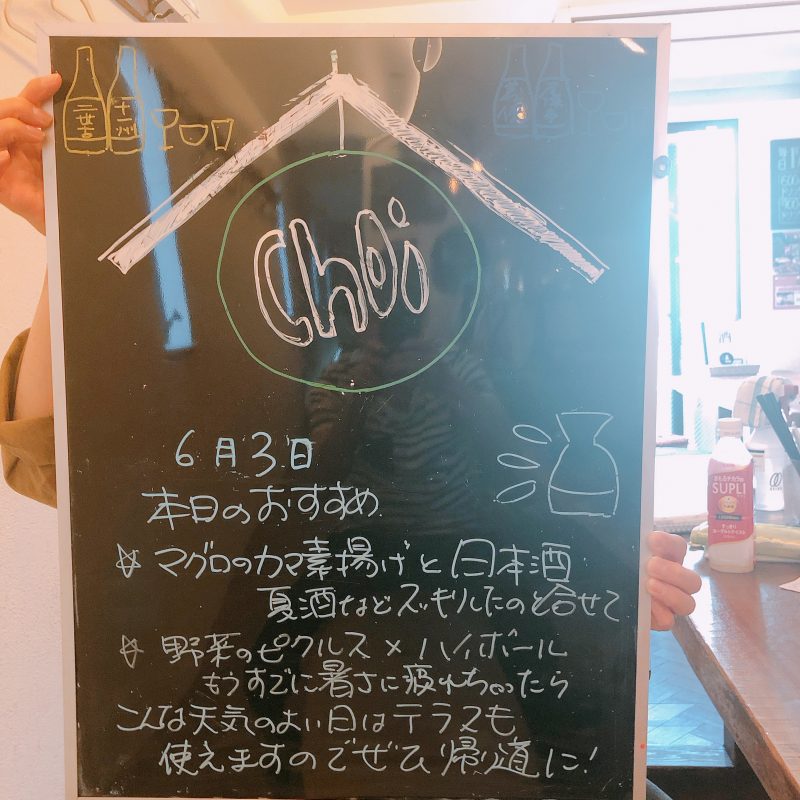 三芳
十六州
Choi
6月3日
本日のおすすめ
☆ マグロのカマ素揚げと日本酒
夏酒などスッキリしたのと合せて
☆ 野菜のピクルス × ハイボール
もうすでに暑さに疲れちゃったら
こんな天気のよい日はテラスも
使えますのでぜひ帰道に!
SUPLI